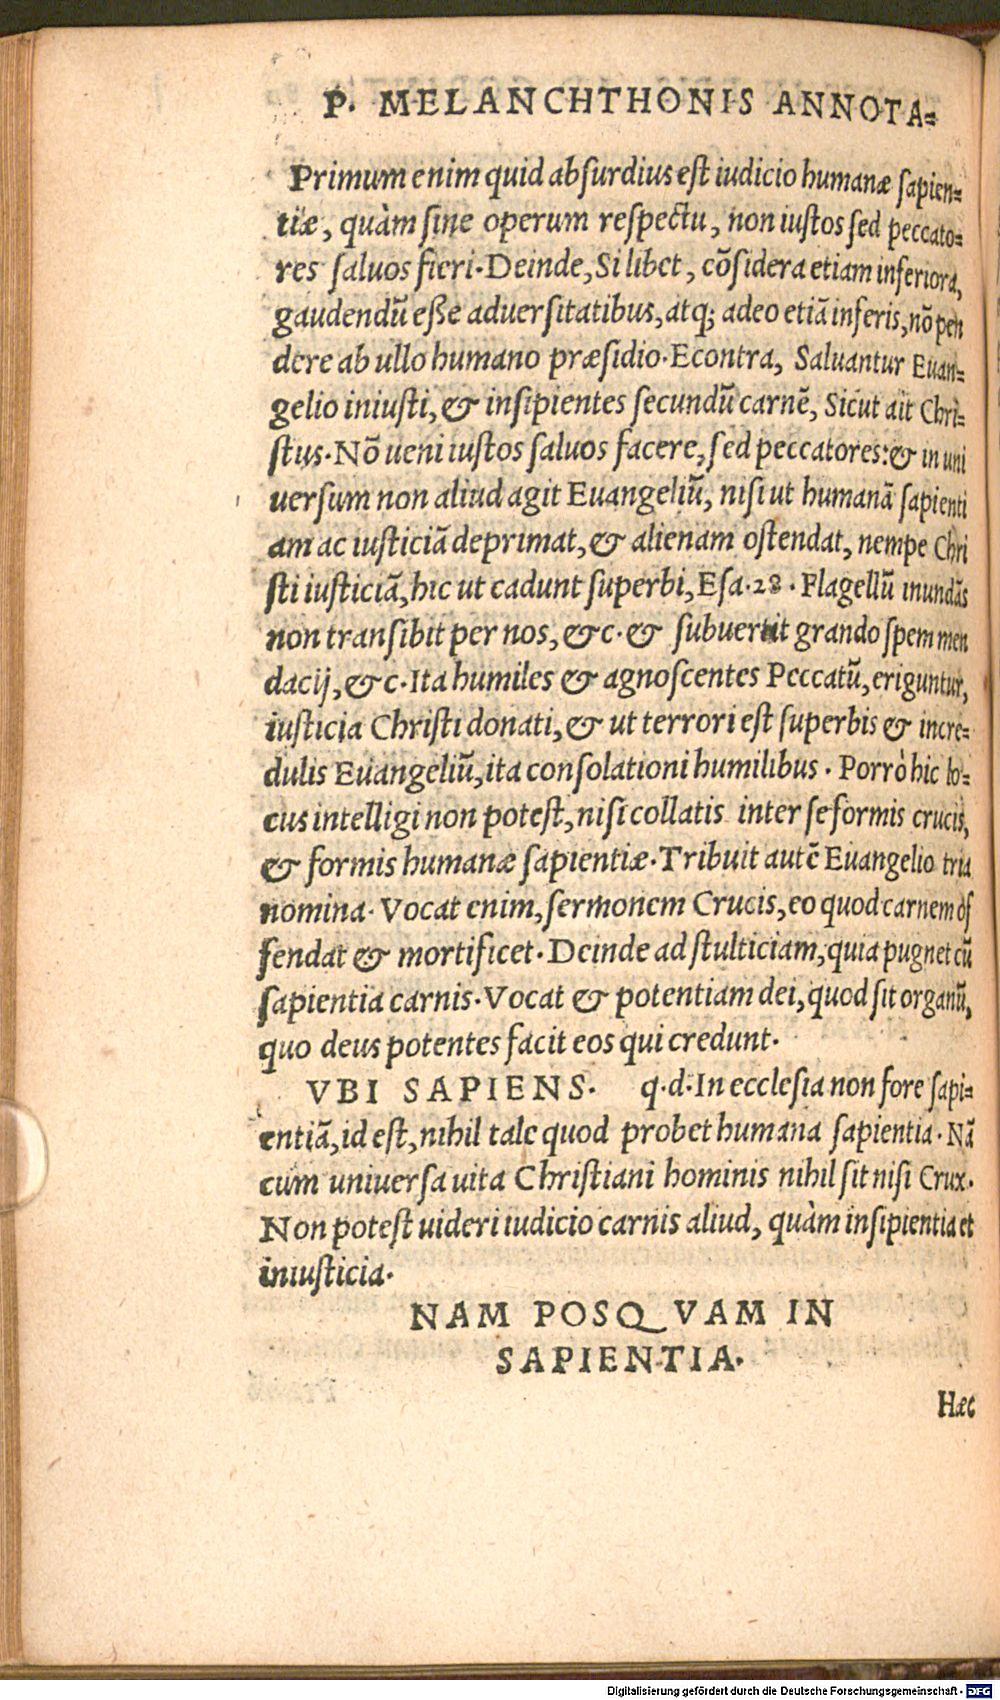 P. MELANCHTHONIS ANNOTA=
Primum enim quid absurdius est iudicio humanæ sapien=
tiæ, quàm sine operum respectu, non iustos sed peccato=
res saluos fieri. Deinde, Si libet, cõsidera etiam inferiora,
gaudendũ esse aduersitatibus, atq; adeo etiã inferis, nõ pen
dere ab ullo humano præsidio. Econtra, Saluantur Euan=
gelio iniusti, & insipientes secundũ carnẽ, Sicut ait Chri=
stus. Nõ ueni iustos saluos facere, sed peccatores: & in uni
uersum non aliud agit Euangeliũ, nisi ut humanã sapienti
am ac iusticiã deprimat, & alienam ostendat, nempe Chri
sti iusticiã, hic ut cadunt superbi, Esa. 28. Flagellũ inundãs
non transibit per nos, &c. & subuertit grando spem men
dacij, &c. Ita humiles & agnoscentes Peccatũ, eriguntur,
iusticia Christi donati, & ut terrori est superbis & incre=
dulis Euangeliũ, ita consolationi humilibus. Porrò hic lo=
cus intelligi non potest, nisi collatis inter se formis crucis,
& formis humanæ sapientiæ. Tribuit autẽ Euangelio tria
nomina. Vocat enim, sermonem Crucis, eo quod carnem of
fendat & mortificet. Deinde ad stulticiam, quia pugnet cũ
sapientia carnis. Vocat & potentiam dei, quod sit organũ,
quo deus potentes facit eos qui credunt.
VBI SAPIENS. q. d. In ecclesia non fore sapi=
entiã, id est, nihil tale quod probet humana sapientia. Nã
cum uniuersa uita Christiani hominis nihil sit nisi Crux.
Non potest uideri iudicio carnis aliud, quàm insipientia et
iniusticia.
NAM POSQVAM IN
SAPIENTIA.
Hæc
Digitalisierung gefördert durch die Deutsche Forschungsgemeinschaft - DFG